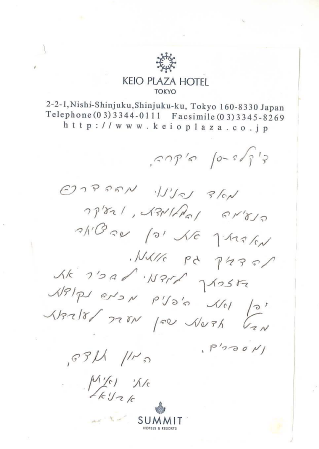 KEIO PLAZA HOTEL
TOKYO
2-2-1,Nishi-Shinjuku,Shinjuku-ku, Tokyo 160-8330 Japan
Telephone(03)3344-0111 Facsimile(03)3345-8269
http://www.keioplaza.co.jp
היקרה,
מאד נהנינו מההדרכה
הנעימה והמלומדת, ובעיקר
מאהבתך את יפן שהצליחה
להדביק גם אותנו.
בעזרתך למדנו להכיר את
יפן ואת היפנים מכמה נקודות
מבט חדשות שהן מעבר לעובדות
ומספרים.
המון תודה,
אתי
SUMMIT
HOTELS & RESORTS